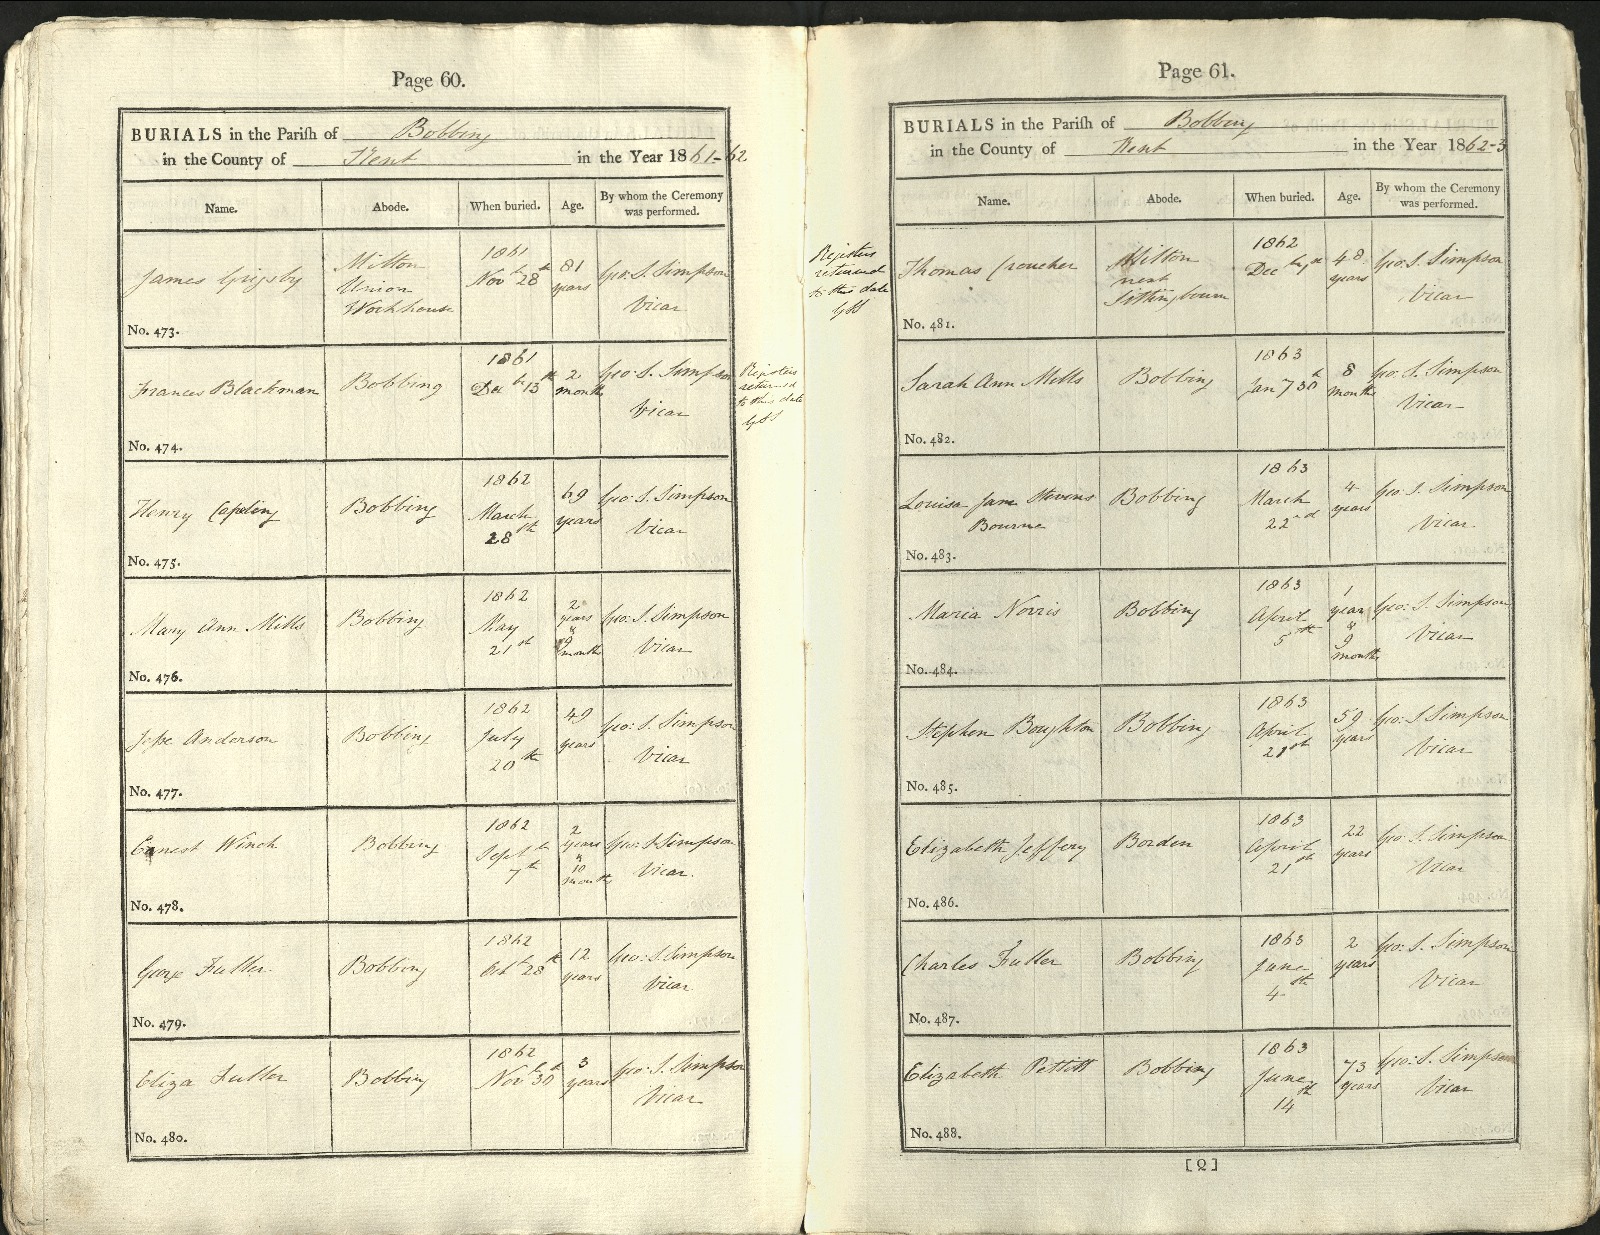 Page 60.
BURIALS in the Parish of Bobbing
in the County of Kent in the Year 1861-62
Name. Abode. When buried. Age. By whom the Ceremony was performed.
James Grigsby
Milton
Union
Workhouse
1861
Novbr 28th
81
years
Geo: S. Simpson
Vicar
No. 473.
Frances Blackman
Bobbing
1861
Decbr 13th
2
months
Geo: S. Simpson
Vicar
No. 474.
Registers
returned
to this date
GSS
Henry Copeling
Bobbing
1862
March
28th
69
years
Geo: S. Simpson
Vicar
No. 475.
Mary Ann Mills
Bobbing
1862
May
21st
2
years
"
9
months
Geo: S. Simpson
Vicar
No. 476.
Jesse Anderson
Bobbing
1862
July
20th
49
years
Geo: S. Simpson
Vicar
No. 477.
Ernest Winch
Bobbing
1862
Septbr
7th
2
years
"
10
months
Geo: S. Simpson
Vicar.
No. 478.
George Fuller
Bobbing
1862
Octbr 28th
12
years
Geo: S. Simpson
Vicar
No. 479.
Eliza Fuller
Bobbing
1862
Novbr 30th
3
years
Geo: S. Simpson
Vicar
No. 480.
Page 61.
BURIALS in the Parish of Bobbing
in the County of Kent in the Year 1862-3
Name. Abode. When buried. Age. By whom the Ceremony was performed.
Registers
returned
to this date
GSS
Thomas Croucher
Milton
next
Sittingbourn
1862
Decbr
48
years
Geo: S. Simpson
Vicar
No. 481.
Sarah Ann Mills
Bobbing
1863
8
months
Geo: S. Simpson
Vicar
No. 482.
Louisa Jane Stevens
Bourne
Bobbing
1863
March
22nd
4
years
Geo: S. Simpson
Vicar
No. 483.
Maria Norris
Bobbing
1863
April
5th
1
year
"
9
months
Geo: S. Simpson
Vicar
No. 484.
Stephen Boughton
Bobbing
1863
April
21st
59
years
Geo: S. Simpson
Vicar
No. 485.
Elizabeth Jeffery
Borden
1863
April
21st
22
years
Geo: S. Simpson
Vicar
No. 486.
Charles Fuller
Bobbing
1863
June
4th
2
years
Geo: S. Simpson
Vicar
No. 487.
Elizabeth Pettitt
Bobbing
1863
June
14th
73
years
Geo: S. Simpson
Vicar
No. 488.
[Q]